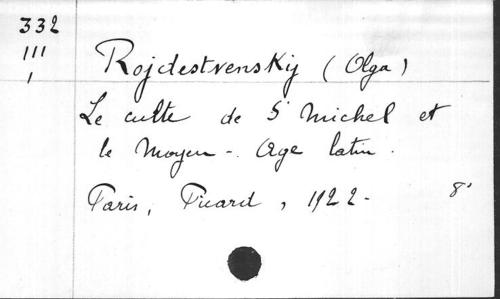 332
III
1
Rojdestvenskij (Olga)
Le culte de St Michel et
le Moyen-Age latin.
Paris, Picard, 1922-
8°